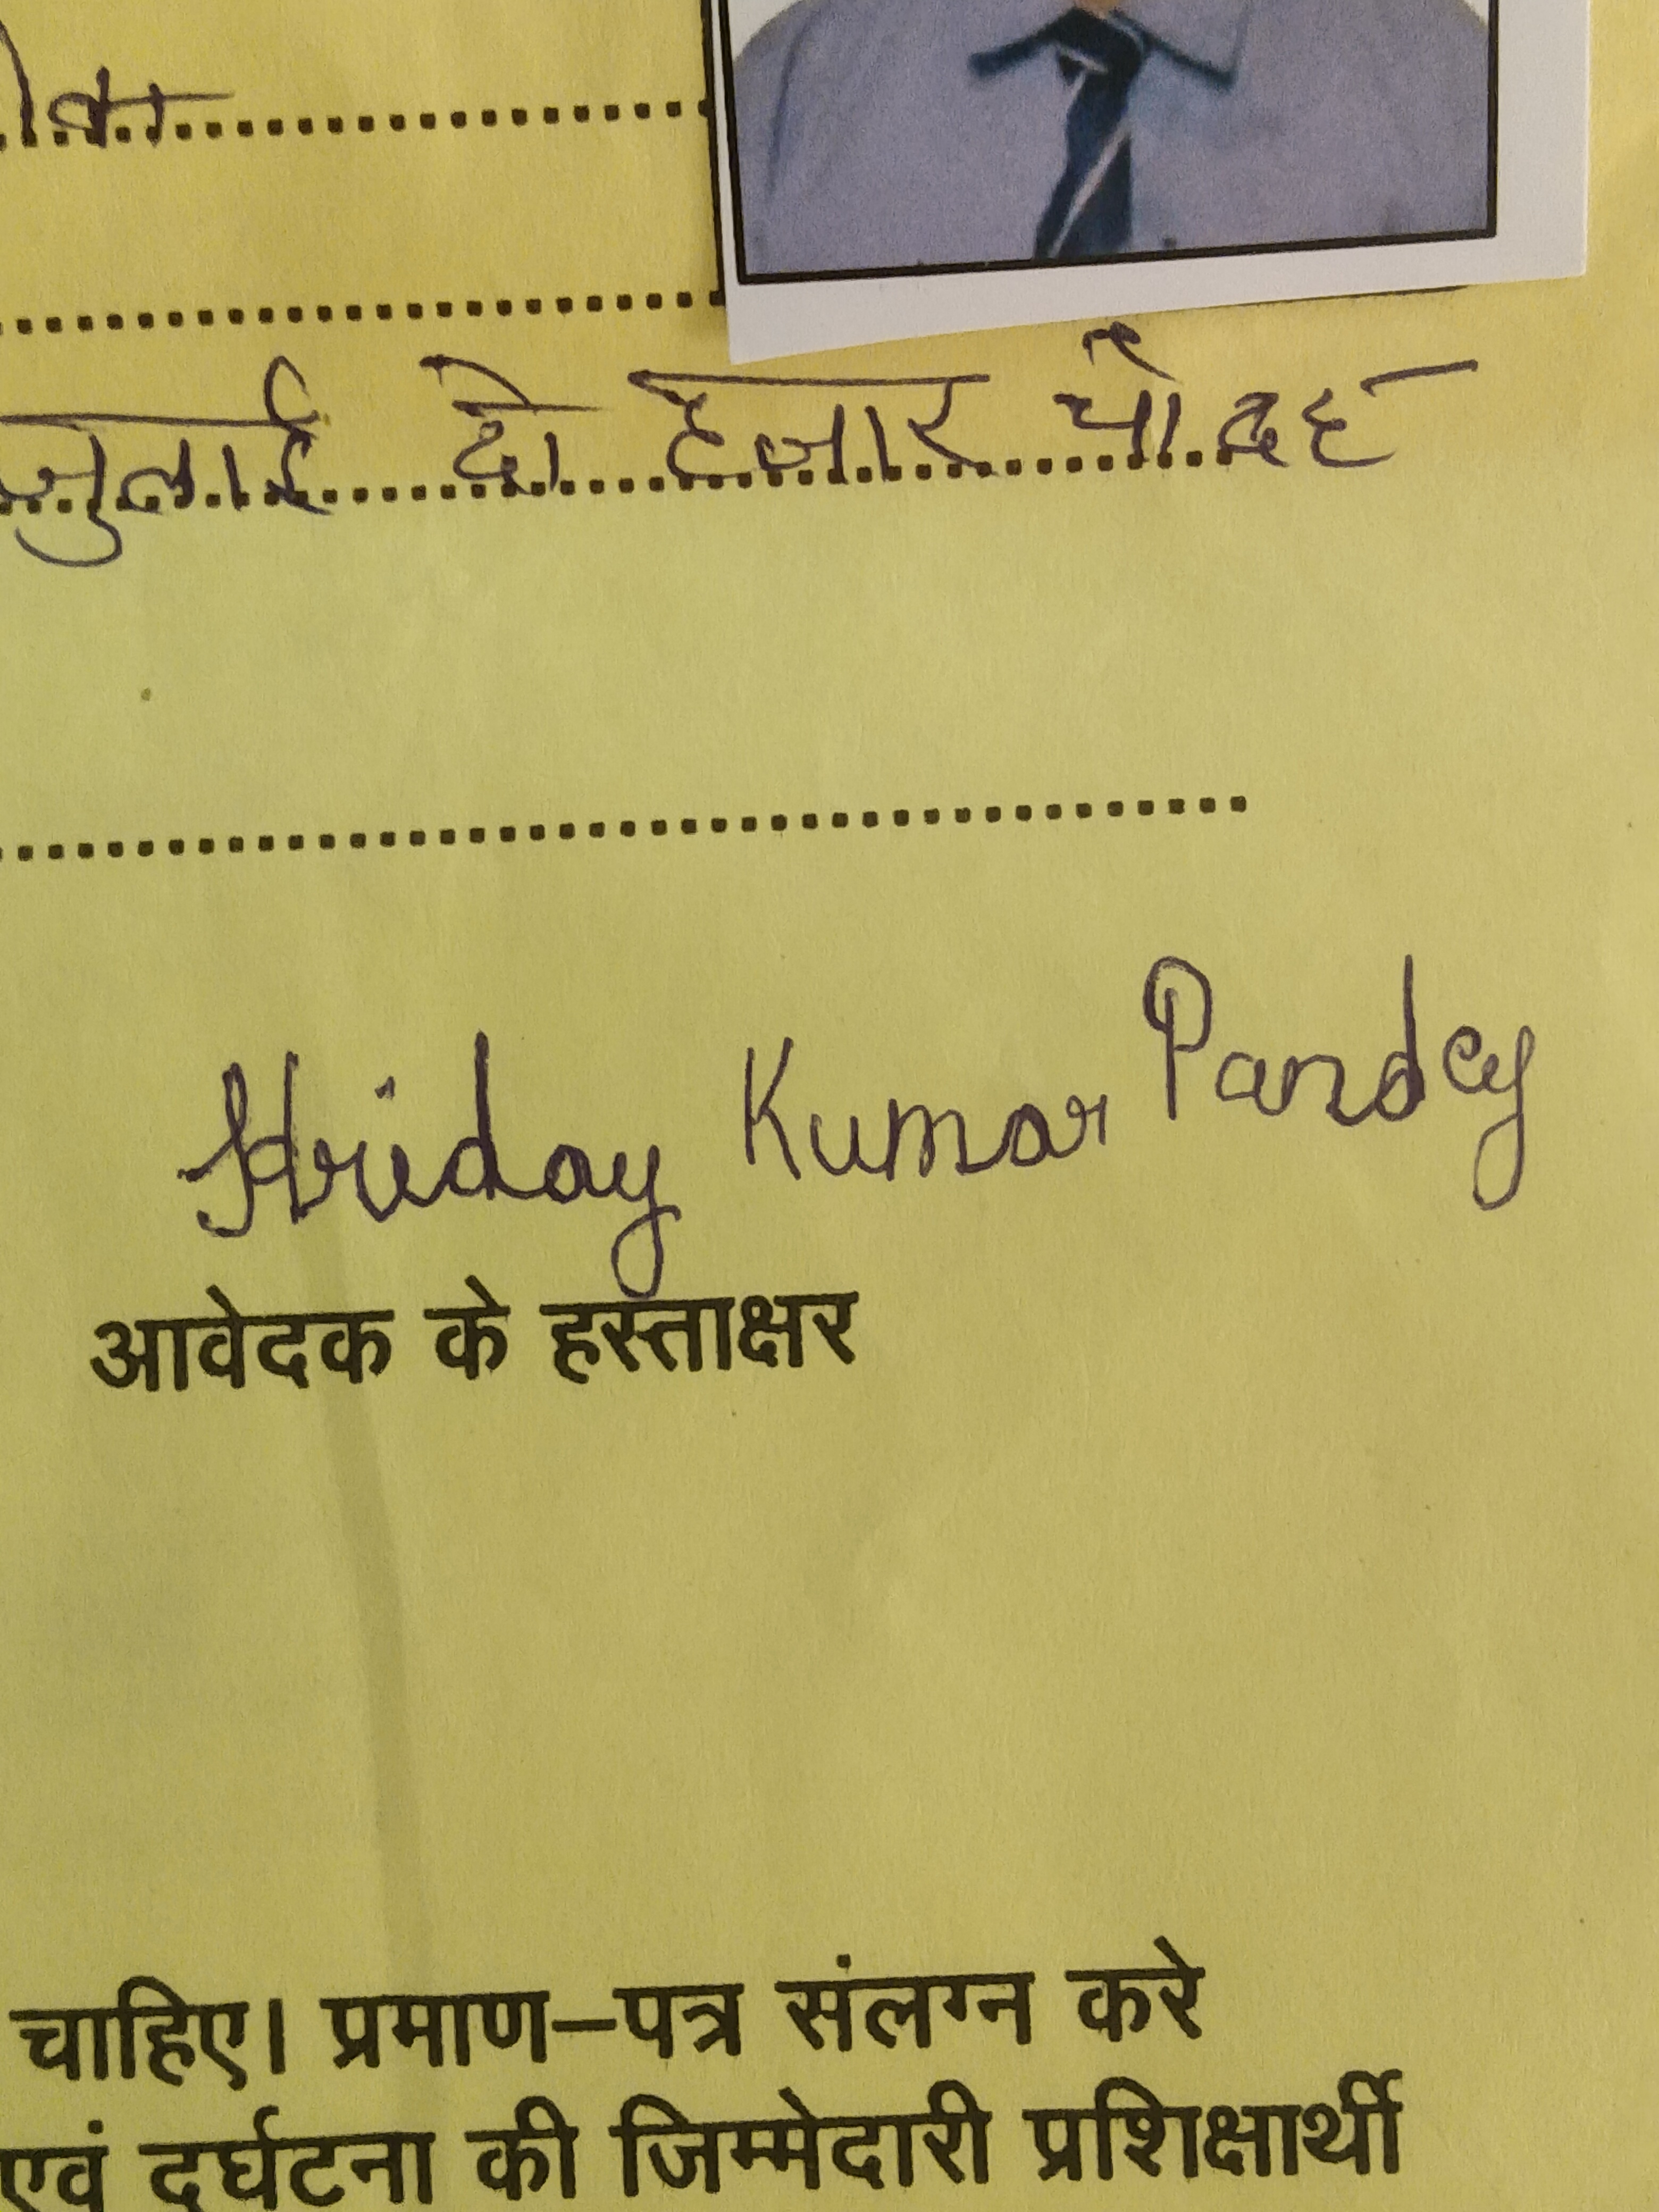 जुलाई दो हजार चौदह
Hriday Kumar Pandey
आवेदक के हस्ताक्षर
चाहिए। प्रमाण–पत्र संलग्न करे
एवं दुर्घटना की जिम्मेदारी प्रशिक्षार्थी